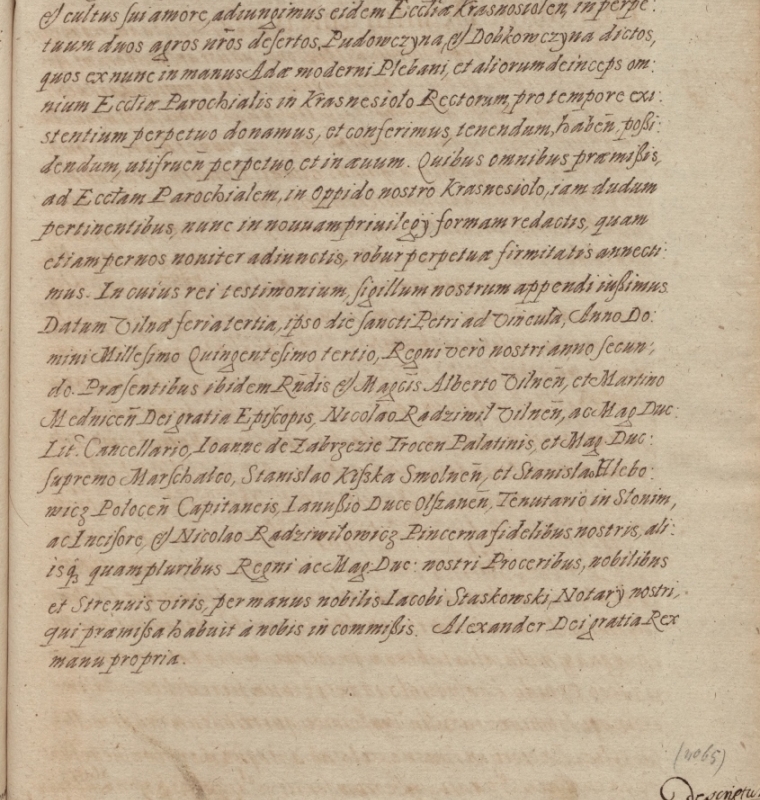 & cultus sui amore, adiungimus eidem Eccłiæ Krasnosiolen, in perpe:
tuum duos agros nr̃os desertos, Pudowczyna, & Dobkowczyna dictos,
quos ex nunc in manus Adæ moderni Plebani, et aliorum deinceps om:
nium Eccłiæ Parochialis in Krasnesioło Rectorum, pro tempore exi:
stentium perpetuo donamus, et conferimus, tenendum, haben̄, poßi:
dendum, utifruen̄ perpetuo, et in æuum. Quibus omnibus præmißis,
ad Eccłam Parochialem, in Oppido nostro Krasnesioło, iam dudum
pertinentibus, nunc in nouuam priuilegÿ formam redactis, quam
etiam per nos noviter adiunctis, robur perpetuæ firmitatis annecti:
mus. In cuius rei testimonium, sigillum nostrum appendi iußimus.
Datum Vilnæ feria tertia, ipso die sancti Petri ad Vincula, Anno Do:
mini Millesimo Quingentesimo tertio, Regni verò nostri anno secun:,
do. Præsentibus ibidem Rñdis & Magc̄is Alberto Vilnen̄, et Martino
Mednicen̄ Dei gratia Episcopis, Nicolao Radziwił Vilnen̄, ac Mag Duc:
Lit: Cancellario, Ioanne de Zabrzezie Trocen Palatinis, et Mag. Duc:
supremo Marschalco, Stanislao Kisska Smolnen̄, et Stanislao Hlebo:
wicz Połocen̄ Capitaneis, Ianußio Duce Olszanen̄, Tenutario in Slonim,
ac Incisore, & Nicolao Radziwiłowicz Pincerna fidelibus nostris, ali:
isq́₃ quampluribus Regni ac Mag. Duc: nostri Proceribus, nobilibus
et Strenuis viris, per manus nobilis Iacobi Staskowski, Notarÿ nostri,
qui præmißa habuit à nobis in commißis. Alexander Dei gratia Rex
manu propria.
(4065)
Descriptu